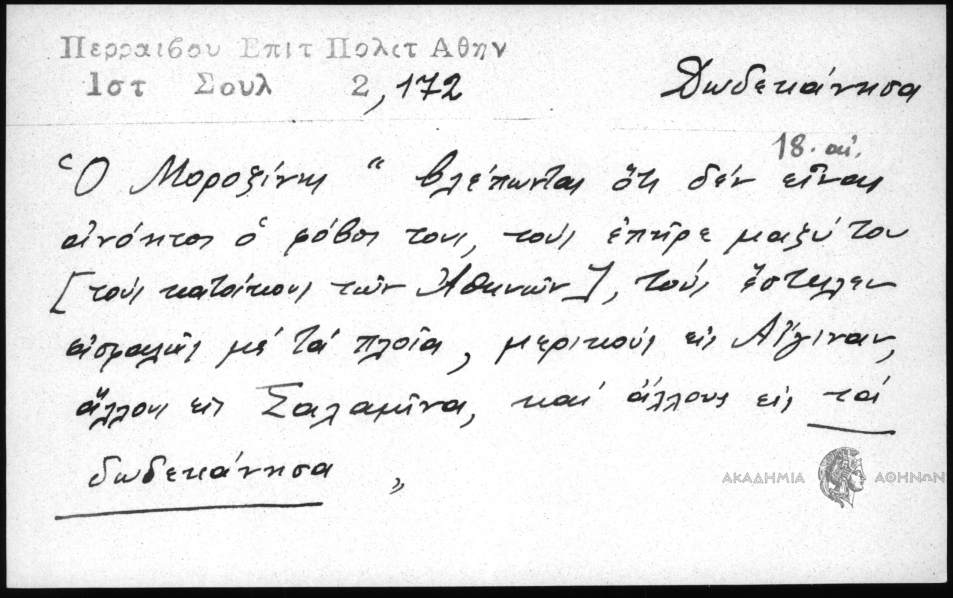 Περραιβου Επιτ Πολιτ Αθην
Ιστ Σουλ 2,172
Δωδεκάνησα
18. αἰ.
Ὁ Μοροζίνης " βλέπωντας ὅτι δέν εἶναι
ἀνόητος ὁ φόβος τους, τούς ἐπῆρε μαζύ του
[τούς κατοίκους τῶν Ἀθηνῶν], τούς ἔστειλεν
ἀσφαλῶς μέ τά πλοῖα, μερικούς εἰς Αἴγιναν,
ἄλλους εἰς Σαλαμῖνα, καί ἄλλους εἰς τά
δωδεκάνησα "
ΑΚΑΔΗΜΙΑ ΑΘΗΝΩΝ